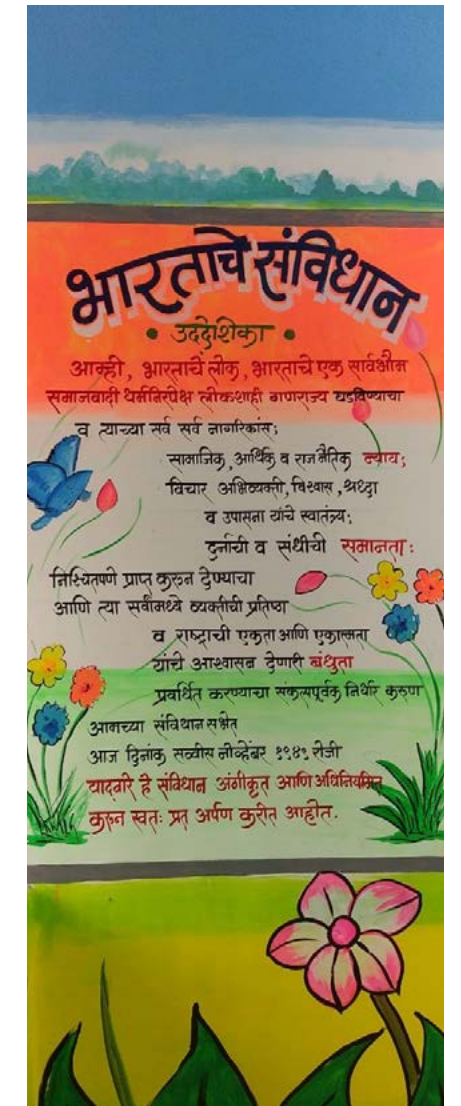 भारताचे संविधान
• उद्देशिका •
आम्ही, भारताचे लोक, भारताचे एक सार्वभौम
समाजवादी धर्मनिरपेक्ष लोकशाही गणराज्य घडविण्याचा
व त्याच्या सर्व सर्व नागरिकांस;
सामाजिक, आर्थिक व राजनैतिक न्याय;
विचार अभिव्यक्ती, विश्वास, श्रध्दा
व उपासना यांचे स्वातंत्र्य;
दर्जाची व संधीची समानता:
निश्चितपणे प्राप्त करून देण्याचा
आणि त्या सर्वांमध्ये व्यक्तीची प्रतिष्ठा
व राष्ट्राची एकता आणि एकात्मता
यांचे आश्वासन देणारी बंधुता
प्रवर्धित करण्याचा संकल्पपूर्वक निर्धार करुण
आमच्या संविधान सभेत
आज दिनांक सव्वीस नोव्हेंबर १९४९ रोजी
याद्वारे हे संविधान अंगीकृत आणि अधिनियमित
करून स्वतः प्रत अर्पण करीत आहोत.